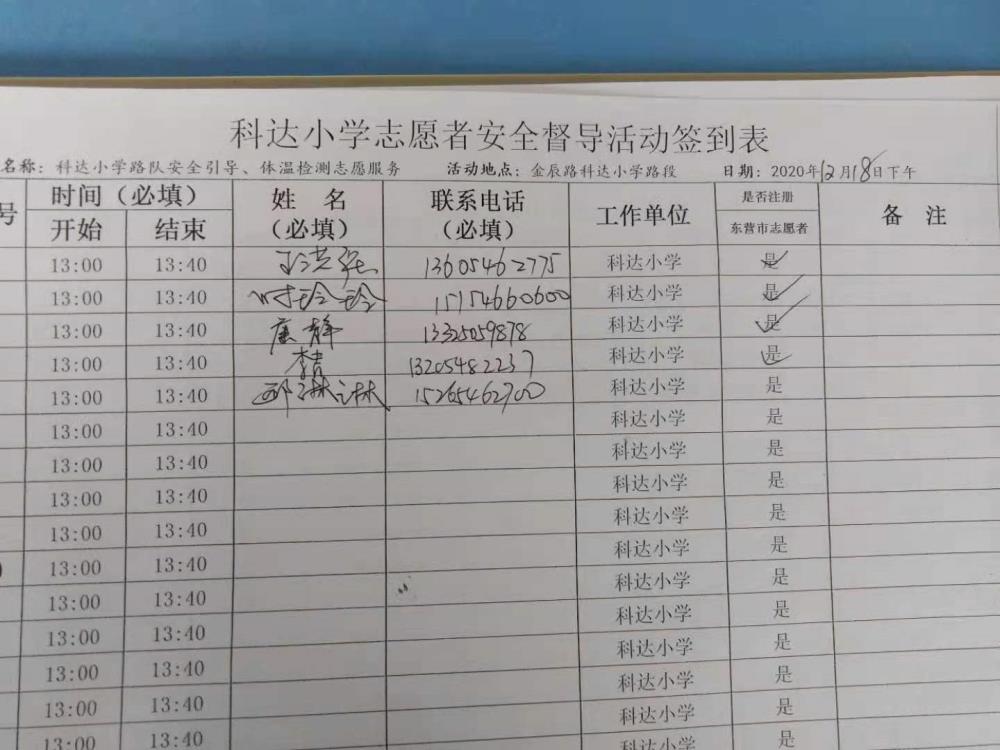 科达小学志愿者安全督导活动签到表
名称：科达小学路队安全引导、体温检测志愿服务 活动地点：金辰路科达小学路段 日期：2020年12月18日下午
号 时间（必填） 姓 名（必填） 联系电话（必填） 工作单位 是否注册 东营市志愿者 备 注
开始 结束
13:00 13:40 13605462775 科达小学 是
13:00 13:40 时玲玲 15154660600 科达小学 是
13:00 13:40 唐静 13325059878 科达小学 是
13:00 13:40 李倩 13205482237 科达小学 是
13:00 13:40 邱琳琳 15265462700 科达小学 是
13:00 13:40 科达小学 是
13:00 13:40 科达小学 是
13:00 13:40 科达小学 是
13:00 13:40 科达小学 是
13:00 13:40 科达小学 是
13:00 13:40 科达小学 是
13:00 13:40 科达小学 是
13:00 13:40 科达小学 是
13:00 13:40 科达小学 是
13:00 13:40 科达小学 是